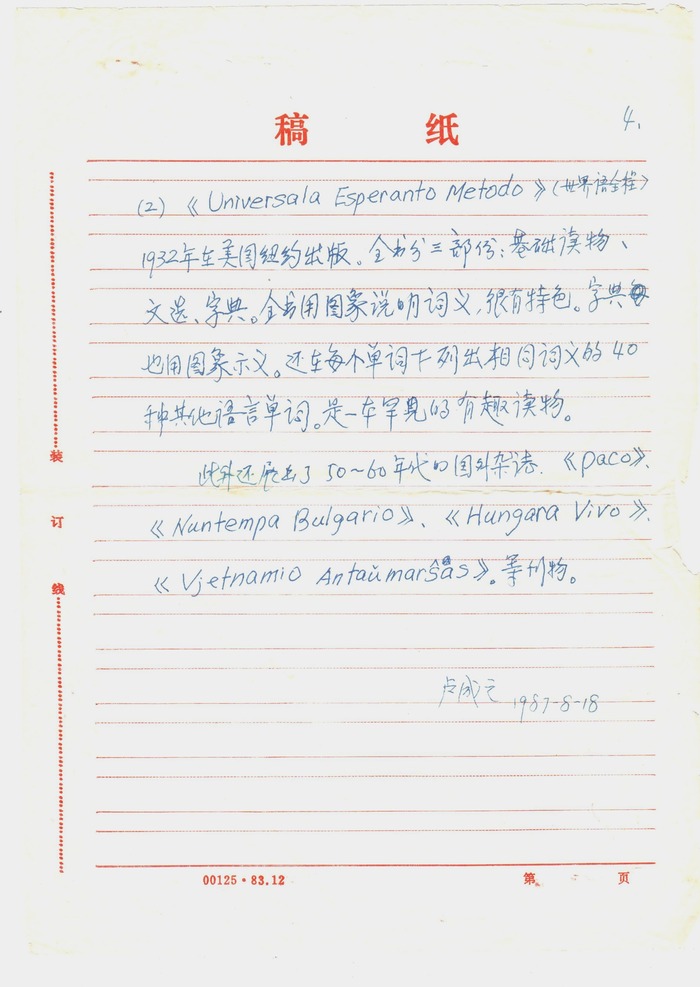 稿 纸
4.
(2)《Universala Esperanto Metodo》(世界语全程)
1932年在美国纽约出版。全书分三部份:基础读物、
文选、字典。全书用图象说明词义,很有特色。字典
也用图象示义。还在每个单词下列出相同词义的40
种其他语言单词。是一本罕见的有趣读物。
此外还展出了50~60年代的国外杂誌.《paco》、
《Nuntempa Bulgario》、《Hungara Vivo》、
《Vjetnamio Antaŭmarŝas》。等刊物。
卢成元 1987-8-18
装
订
线
00125·83.12 第 页